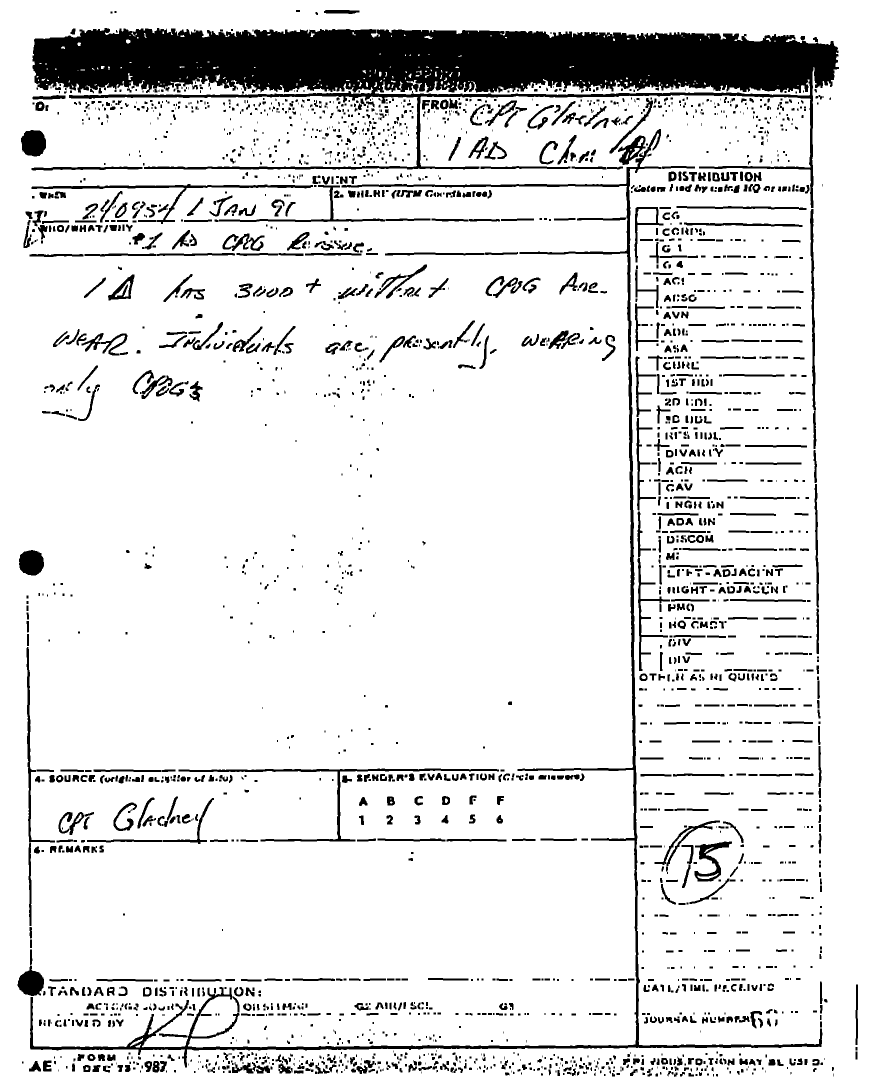 FROM
CPT Gladney
1 AD Chem
EVENT
WHEN
240954 / 1 JAN 91
2. WHERE (UTM Coordinates)
WHO/WHAT/WHY
1 AD CPOG Reissue.
1 has 3000 + without CPOG
WEAR. Individuals are, presently, wearing
only CPOGs
DISTRIBUTION
CG
CORPS
G 1
G 4
AVN
ASA
1ST BDE
2D BDE
3D BDE
RES BDE
DIVARTY
ACR
CAV
ENGR BN
ADA BN
DISCOM
MI
LEFT-ADJACENT
RIGHT-ADJACENT
PMO
HQ CMDT
DIV
DIV
OTHER AS REQUIRED
4. SOURCE (original supplier of info)
CPT Gladney
5. SENDER'S EVALUATION (Circle answers)
A B C D E F
1 2 3 4 5 6
6. REMARKS
15
STANDARD DISTRIBUTION:
RECEIVED BY
DATE/TIME RECEIVED
JOURNAL NUMBER 60
AE FORM 987
1 DEC 75
PREVIOUS EDITION MAY BE USED.